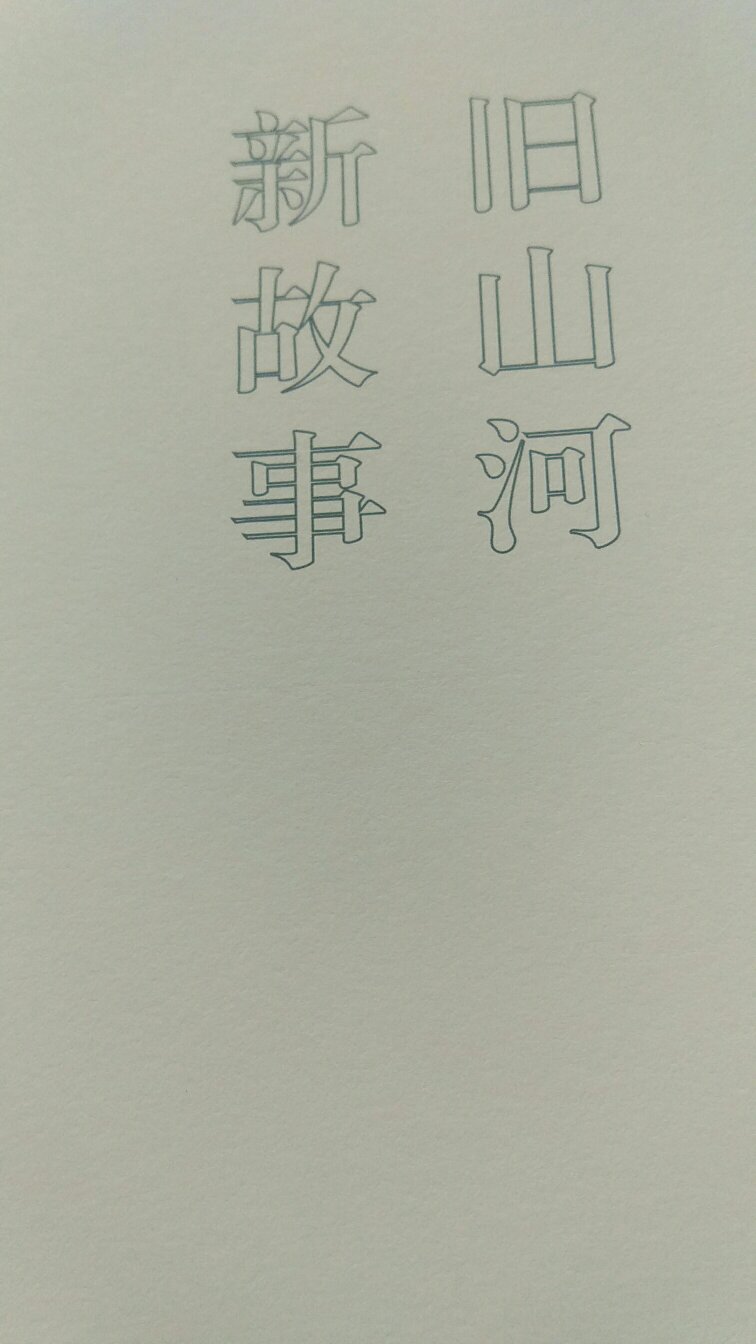 旧山河
新故事